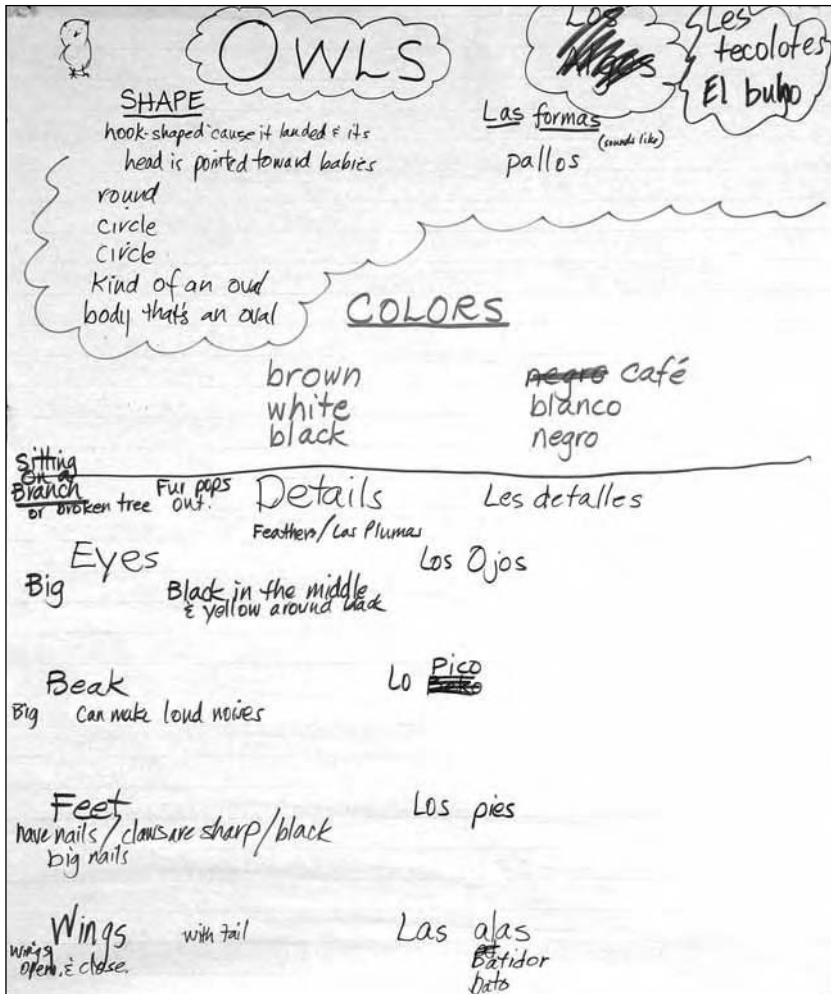 OWLS
Los
Les
tecolotes
El buho
SHAPE
hook-shaped 'cause it landed & its
head is pointed toward babies
round
circle
circle
kind of an oval
body that's an oval
Las formas
(sounds like)
pallos
COLORS
brown
white
black
negro café
blanco
negro
Sitting
on a
Branch
or broken tree
Fur pops
out.
Details
Feathers/Las Plumas
Les detalles
Eyes
Los Ojos
Big
Black in the middle
& yellow around back
Beak
Lo Pico
Big
Can make loud noises
Feet
Los pies
have nails/claws are sharp/black
big nails
Wings
with tail
Las alas
Wings
open, & close.
Batidor
bato